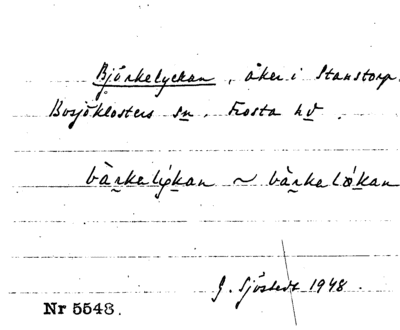 Björkelyckan, åker i Stanstorp.
Bosjöklosters sn. Frosta hd.
bàrkelykan ~ bàrkelökan
G. Sjöstedt 1948.
Nr 5548.